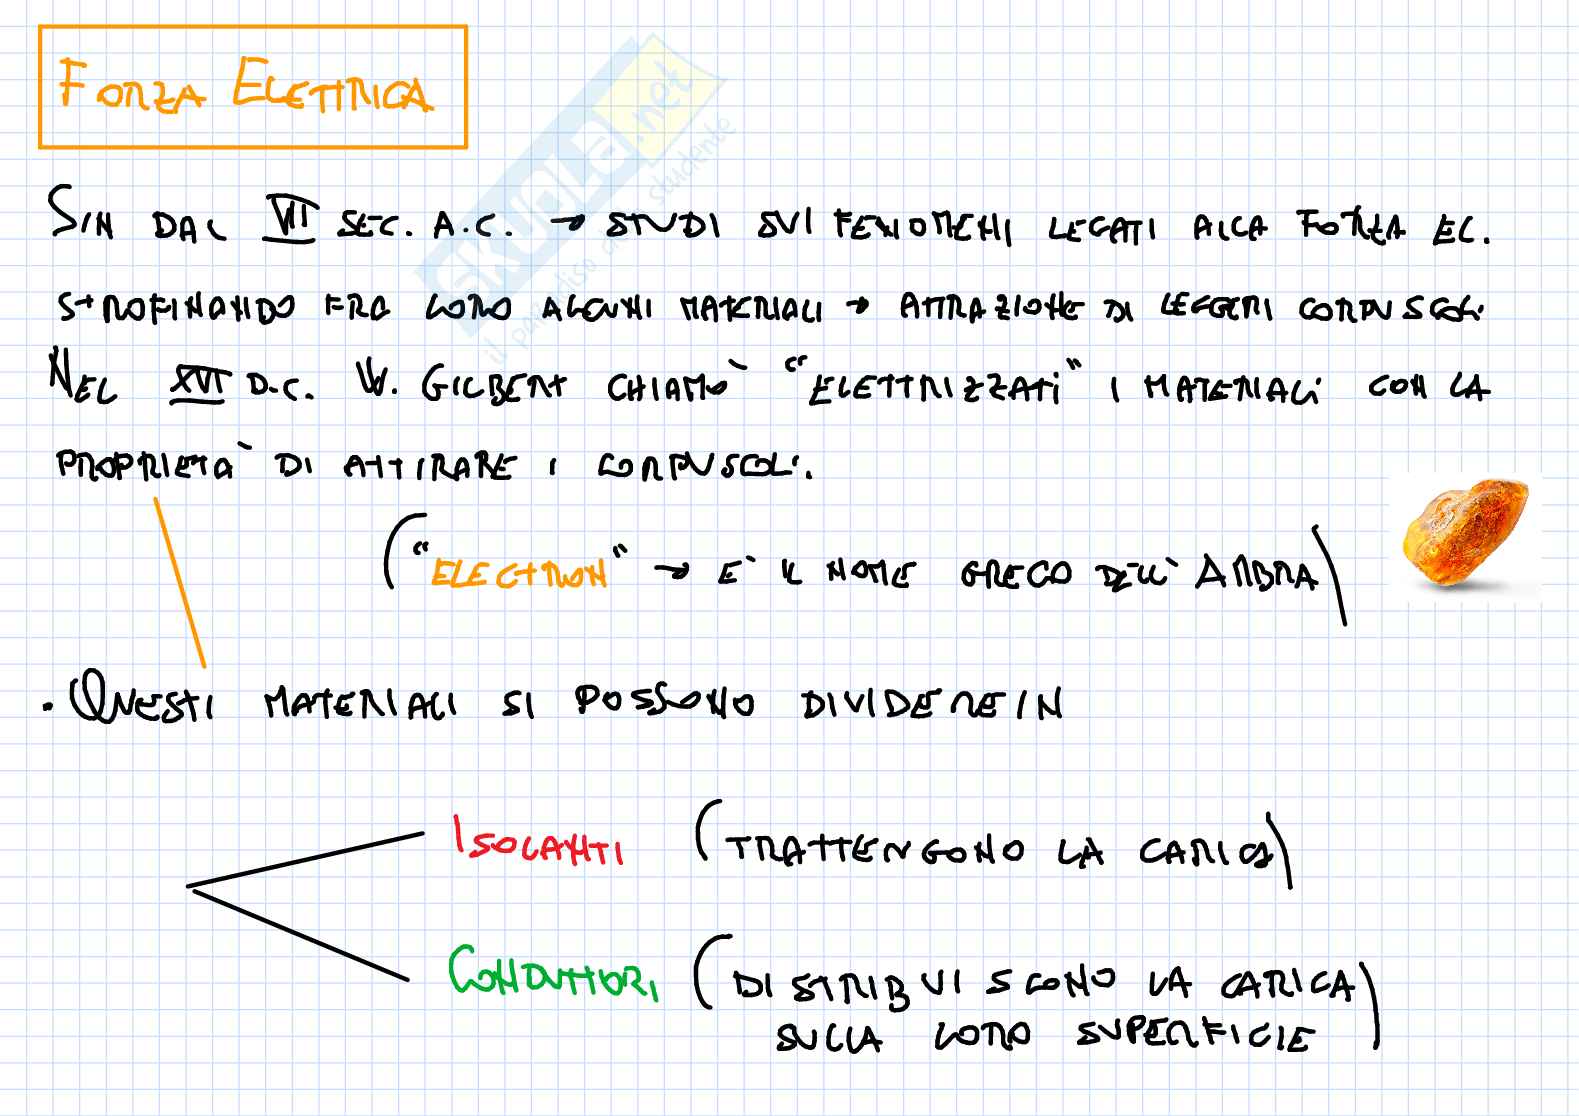 FORZA ELETTRICA
SKUOLA.net
il paradiso dello studente
SIN DAL VII SEC. A.C. → STUDI SUI FENOMENI LEGATI ALLA FORZA EL.
STROFINANDO FRA LORO ALCUNI MATERIALI → ATTRAZIONE DI LEGGERI CORPUSCOLI
NEL XVI D.C. W. GILBERT CHIAMÒ "ELETTRIZZATI" I MATERIALI CON LA
PROPRIETÀ DI ATTIRARE I CORPUSCOLI.
("ELECTRON" → E' IL NOME GRECO DELL'AMBRA)
• QUESTI MATERIALI SI POSSONO DIVIDERE IN
ISOLANTI (TRATTENGONO LA CARICA)
CONDUTTORI (DISTRIBUISCONO LA CARICA
SULLA LORO SUPERFICIE)